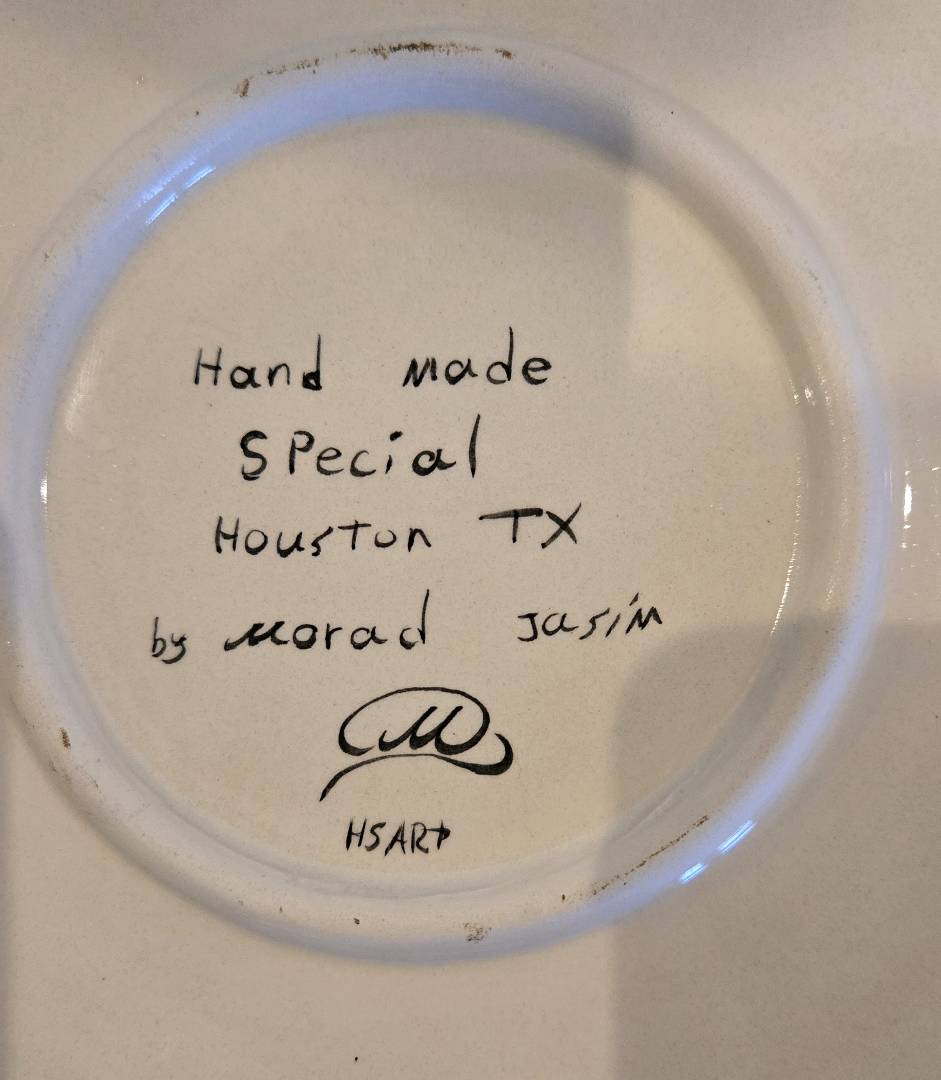 Hand made
SPecial
Houston TX
by Morad Jasim
M
HSART